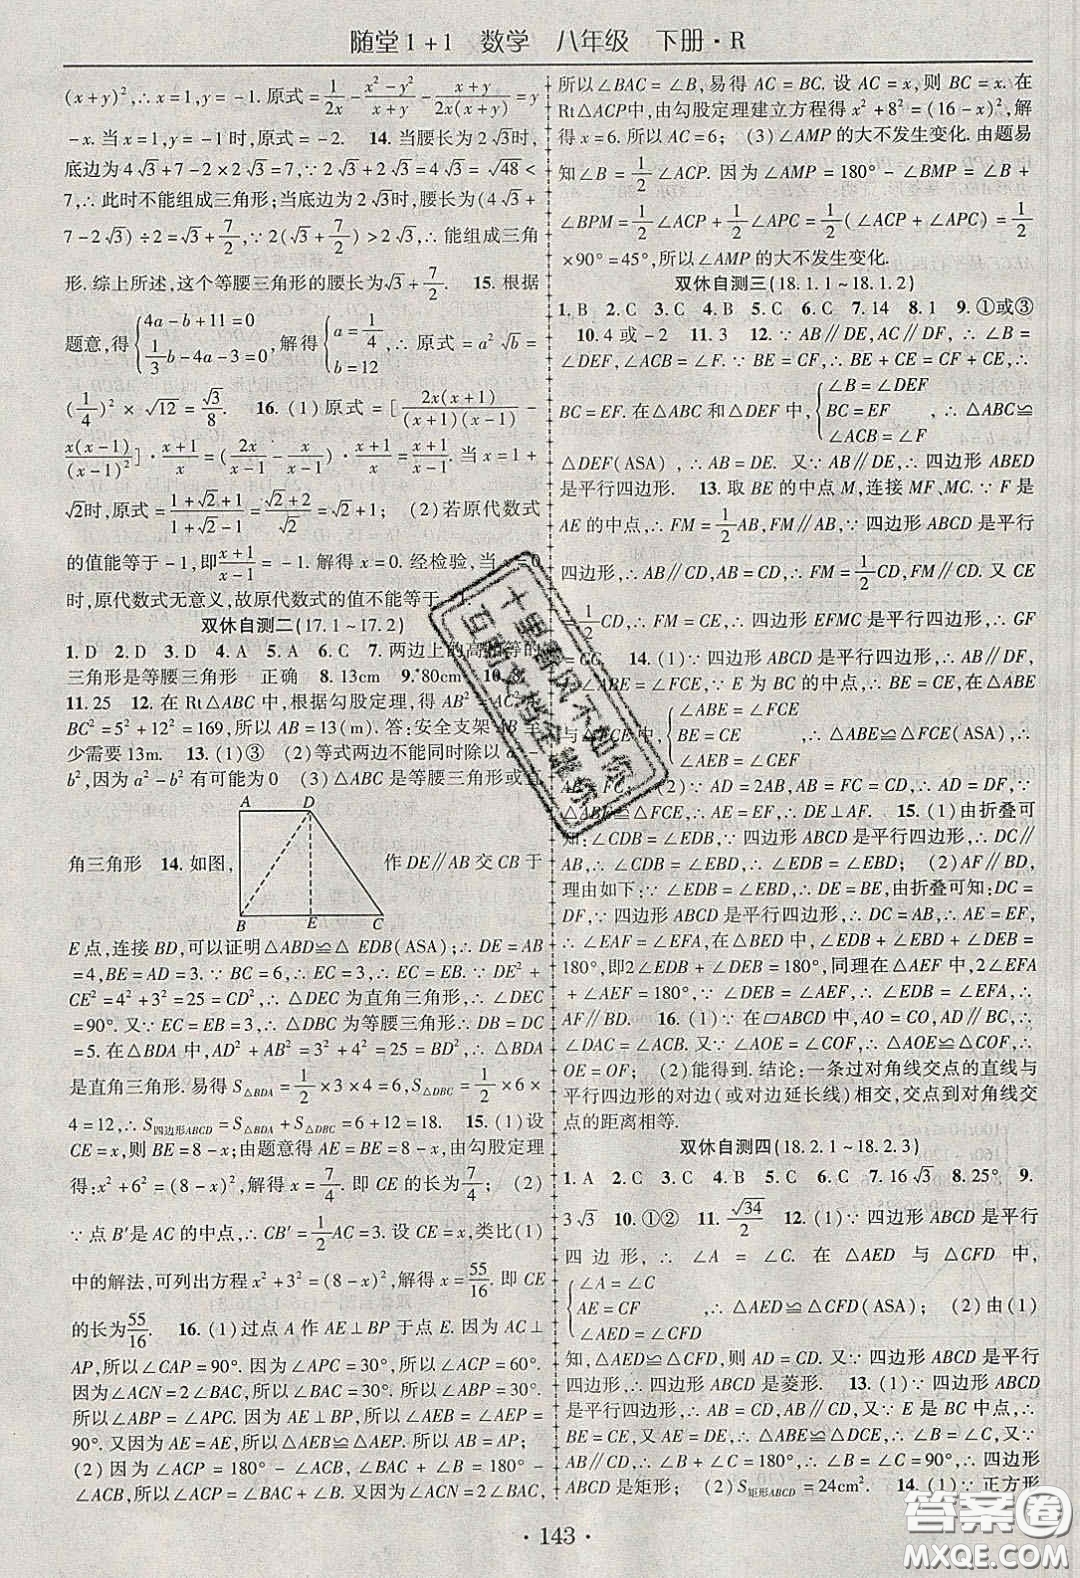 随堂1+1 数学 八年级 下册·R
(x+y)²,∴x=1,y=-1. 原式=1/2x - (x²-y²)/(x+y) - (x+y)/2x(x+y) = y
-x. 当x=1,y=-1时,原式=-2. 14. 当腰长为2√3时,
底边为4√3+7-2×2√3=7,∵2√3+2√3=4√3=√48<
7,∴此时不能组成三角形;当底边为2√3时,腰长为(4√3+
7-2√3)÷2=√3+7/2,∵2(√3+7/2)>2√3,∴能组成三角
形. 综上所述,这个等腰三角形的腰长为√3+7/2. 15. 根据
题意,得{4a-b+11=0 1/3b-4a-3=0 ,解得{a=1/4 b=12 ,∴原式=a²√b=
(1/4)²×√12=√3/8. 16. (1)原式=[2x(x+1)/(x+1)(x-1) -
x(x-1)/(x-1)²]·(x+1)/x=(2x/(x-1) - x/(x-1))·(x+1)/x=(x+1)/(x-1). 当x=1+
√2时,原式=(1+√2+1)/(1+√2-1)=(√2+2)/√2=√2+1; (2)若原代数式
的值能等于-1,即(x+1)/(x-1)=-1. 解得x=0. 经检验,当x=0
时,原代数式无意义,故原代数式的值不能等于
双休自测二(17.1~17.2)
1. D 2. D 3. D 4. A 5. A 6. C 7. 两边上的高相等的
三角形是等腰三角形 正确 8. 13cm 9. 80cm²
11. 25 12. 在Rt△ABC中,根据勾股定理,得AB²=AC²+
BC²=5²+12²=169,所以AB=13(m). 答:安全支架AB至
少需要13m. 13. (1)③ (2)等式两边不能同时除以a²-
b²,因为a²-b²有可能为0 (3)△ABC是等腰三角形或
A D
角三角形 14. 如图, 作DE∥AB交CB于
B E C
E点,连接BD,可以证明△ABD≌△EDB(ASA);∴DE=AB
=4,BE=AD=3. ∵BC=6,∴EC=3=EB,∵DE²+
CE²=4²+3²=25=CD²,∴△DEC为直角三角形,∠DEC
=90°. 又∵EC=EB=3,∴△DBC为等腰三角形∴DB=DC
=5. 在△BDA中,AD²+AB²=3²+4²=25=BD²,∴△BDA
是直角三角形. 易得S△BDA=1/2×3×4=6,S△DBC=1/2×6×
4=12,∴S四边形ABCD=S△BDA+S△DBC=6+12=18. 15. (1)设
CE=x,则BE=8-x;由题意得AE=BE=8-x,由勾股定理
得:x²+6²=(8-x)²,解得:x=7/4. 即CE的长为7/4; (2)
∵点B′是AC的中点,∴CB′=1/2AC=3. 设CE=x,类比(1)
中的解法,可列出方程x²+3²=(8-x)²,解得x=55/16. 即CE
的长为55/16. 16. (1)过点A作AE⊥BP于点E. 因为AC⊥
AP,所以∠CAP=90°. 因为∠APC=30°,所以∠ACP=60°.
因为∠ACN=2∠BAC,所以∠BAC=30°,所以∠ABP=30°.
所以∠ABP=∠APC. 因为AE⊥BP,所以∠AEB=∠AEP=
90°. 又因为AE=AE,所以△AEB≌△AEP. 所以AB=AP;
(2)因为∠ACP=180°-∠ACN,∠ACP=180°-∠BAC-∠B,
所以∠ACN=∠BAC+∠B. 又因为∠ACN=2∠BAC,
所以∠BAC=∠B,易得AC=BC. 设AC=x,则BC=x. 在
Rt△ACP中,由勾股定理建立方程得x²+8²=(16-x)²,解
得x=6. 所以AC=6; (3)∠AMP的大不发生变化. 由题易
知∠B=1/2∠ACP. 因为∠AMP=180°-∠BMP=∠B+
∠BPM=1/2∠ACP+1/2∠APC=1/2(∠ACP+∠APC)=1/2
×90°=45°,所以∠AMP的大不发生变化.
双休自测三(18.1.1~18.1.2)
1. B 2. C 3. C 4. B 5. C 6. C 7. 14 8. 1 9. ①或③
10. 4或-2 11. 3 12. ∵AB∥DE,AC∥DF,∴∠B=
∠DEF,∠ACB=∠F. ∵BE=CF,∴BE+CE=CF+CE,∴
BC=EF. 在△ABC和△DEF中,{∠B=∠DEF BC=EF ∠ACB=∠F ,∴△ABC≌
△DEF(ASA),∴AB=DE. 又∵AB∥DE,∴四边形ABED
是平行四边形. 13. 取BE的中点M,连接MF、MC. ∵F是
AE的中点,∴FM=1/2AB,FM∥AB. ∵四边形ABCD是平行
四边形,∴AB∥CD,AB=CD,∴FM=1/2CD,FM∥CD. 又CE
=1/2CD,∴FM=CE,∴四边形EFMC是平行四边形,∴GF
=GC. 14. (1)∵四边形ABCD是平行四边形,∴AB∥DF,
∴∠ABE=∠FCE,∵E为BC的中点,∴BE=CE,在△ABE
与△FCE中,{∠ABE=∠FCE BE=CE ∠AEB=∠CEF ,∴△ABE≌△FCE(ASA),∴
AB=FC; (2)∵AD=2AB,AB=FC=CD,∴AD=DF,∵
△ABE≌△FCE,∴AE=EF,∴DE⊥AF. 15. (1)由折叠可
知:∠CDB=∠EDB,∵四边形ABCD是平行四边形,∴DC∥
AB,∴∠CDB=∠EBD,∴∠EDB=∠EBD; (2)AF∥BD,
理由如下:∵∠EDB=∠EBD,∴DE=BE,由折叠可知:DC=
DF,∵四边形ABCD是平行四边形,∴DC=AB,∴AE=EF,
∴∠EAF=∠EFA,在△BED中,∠EDB+∠EBD+∠DEB=
180°,即2∠EDB+∠DEB=180°,同理在△AEF中,2∠EFA
+∠AEF=180°,∵∠DEB=∠AEF,∴∠EDB=∠EFA,∴
AF∥BD. 16. (1)∵在▱ABCD中,AO=CO,AD∥BC,∴
∠DAC=∠ACB. 又∵∠AOE=∠COF,∴△AOE≌△COF,∴
OE=OF; (2)能得到. 结论:一条过对角线交点的直线与
平行四边形的对边(或对边延长线)相交,交点到对角线交
点的距离相等.
双休自测四(18.2.1~18.2.3)
1. A 2. C 3. C 4. B 5. C 6. C 7. 16√3 8. 25° 9.
3√3 10. ①② 11. √34/2 12. (1)∵四边形ABCD是平行
四边形,∴∠A=∠C. 在△AED与△CFD中,
{∠A=∠C AE=CF ∠AED=∠CFD ,∴△AED≌△CFD(ASA); (2)由(1)
知,△AED≌△CFD,则AD=CD. 又∵四边形ABCD是平行
四边形,∴四边形ABCD是菱形. 13. (1)∵四边形ABCD
是平行四边形,∴AB=CD,AB∥CD,又∵E是BC中点,∴
BE=CE,又∵AE=DE,∴△ABE≌△DCE,∴∠B=∠C,又
∵AB∥CD,∴∠B+∠C=180°,∴∠B=∠C=90°,∴四边形
ABCD是矩形; (2)S矩形ABCD=24cm². 14. (1)∵正方形
· 143 ·
十里春风不如你
互助文档全靠你
答案圈
MXQE.COM